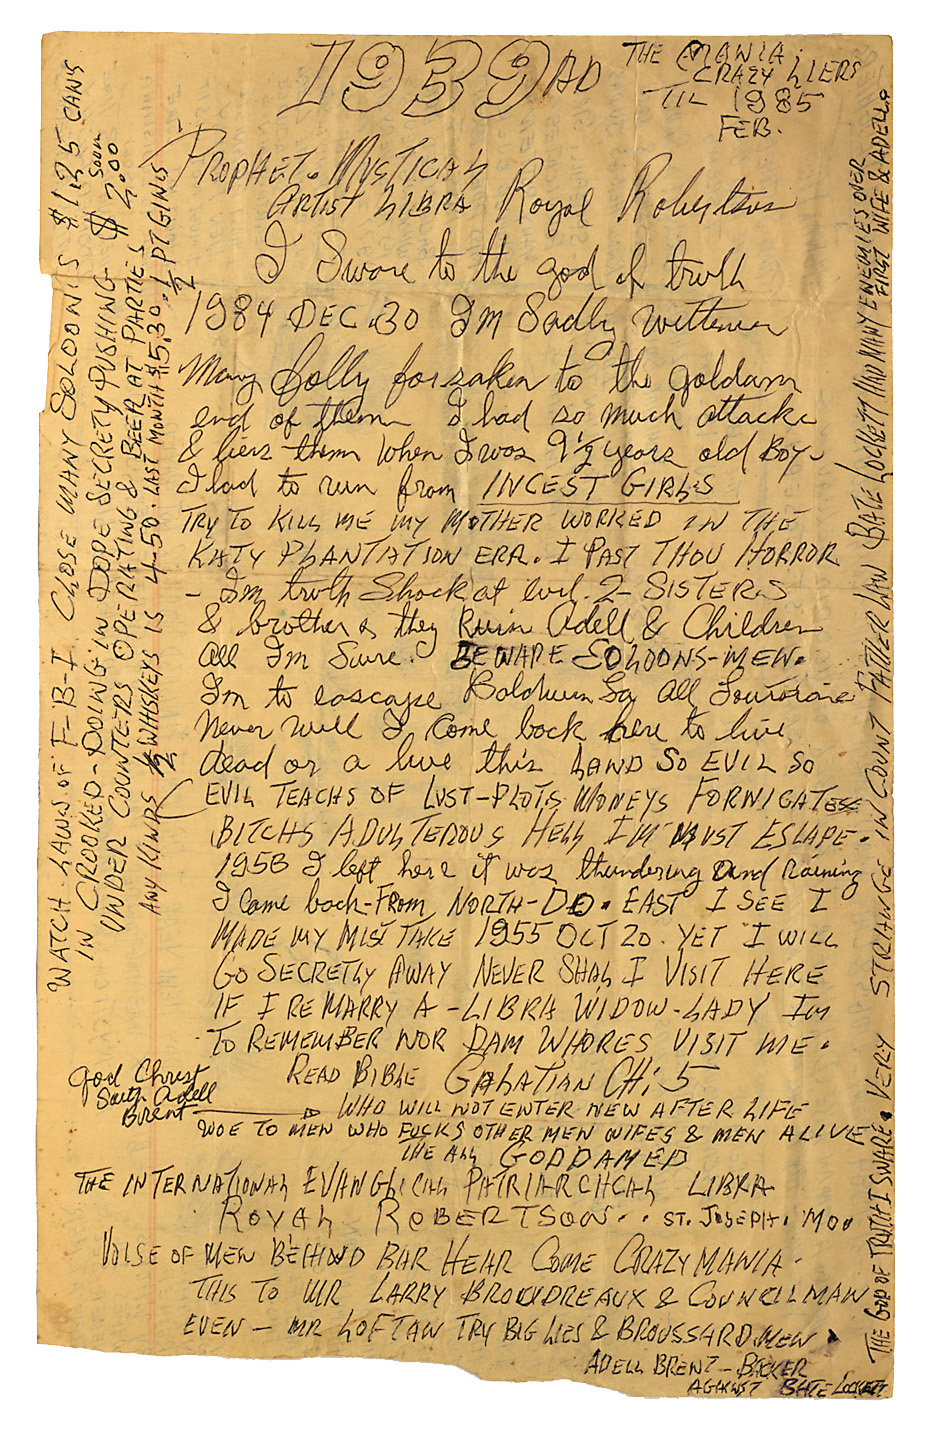 1939 AD
THE MANIA.
CRAZY LIERS
TIL 1985
FEB.
PROPHET. MYSTICAL
ARTIST LIBRA Royal Robertson
I Swore to the god of truth
1984 DEC. 30 Im Sadly
Many folly forsaken to the goldam
end of them I had so much attacks
& liers them when I was 9½ years old BOY-
I had to run from INCEST GIRLS
TRY TO KILL ME MY MOTHER WORKED IN THE
KATY PLANTATION ERA. I PAST THOU HORROR
- Im truth Shock at evil. 2- SISTERS
& brothers they Ruin Adell & Children
All Im Sure. BEWARE SOLOONS-MEN.
Im to eascape Baldwin La All Louisiana
Never will I Come back here to live,
dead or a live this LAND SO EVIL SO
EVIL TEACHS OF LUST-PLOTS MONEYS FORNIGATESS
BITCHS ADULTEROUS HELL I'M MUST ESCAPE.
I left here it was thundering and Raining
I Came back-FROM NORTH-DO. EAST I SEE I
MADE MY MISTTAKE 1955 OCT 20. YET I WILL
GO SECRETLY AWAY NEVER SHAL I VISIT HERE
IF I REMARRY A-LIBRA WIDOW-LADY Im
TO REMEMBER NOR DAM WHORES VISIT ME.
READ BIBLE GALATIAN CH; 5
god Christ
Adell
Brent
WHO WILL NOT ENTER NEW AFTER LIFE
WOE TO MEN WHO FUCKS OTHER MEN WIFES & MEN ALIVE
THE ALL GODDAMED
THE INTERNATIONAL EVANGLICAL PATRIARCHCAL LIBRA
ROYAL ROBERTSON.. ST. JOSEPH. MO..
VOISE OF MEN BEHIND BAR HEAR COME CRAZY MANIA.
THIS TO MR LARRY BROUDREAUX & COUNCILMAN
EVEN - MR LOFTAN TRY BIG LIES & BROUSSARD. MEN
ADELL BRENT - BACKER
AGAINST BATE LOCKETT
WATCH LAWS OF F-B-I. CLOSE MANY SOLOONIS $1.25 CANS
IN CROOKED-DOING IN DOPE SECRETY PUSHING $ SOON 2.00
UNDER COUNTERS OPERATING & BEER AT PARTIES
ANY KINDS ½ WHISKEYS IS 4-50. LAST MONTH $5.30. ½ PT GINS
THE GOD OF TRUTH I SWARE. VERY STRIANGE IN COUNT FATHER LAW BATE LOCKETT HAD MANY ENEMIES OVER
FIRST WIFE & ADELL